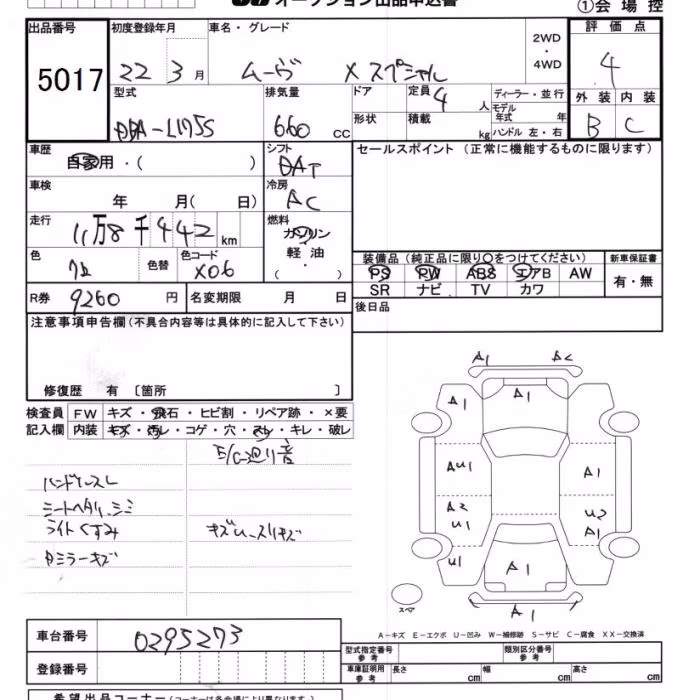 オークション出品申込書
①会場控
出品番号 初度登録年月 車名・グレード 2WD・4WD 評価点
5017 22 3月 ムーヴ X スペシャル 4
型式 排気量 ドア 定員 ディーラー・並行 外装 内装
DBA-L175S 660 cc 4人 モデル年式 年 B C
形状 積載 kg ハンドル 左・右
車歴 シフト セールスポイント (正常に機能するものに限ります)
自家用・( ) DAT
車検 冷房
年 月( 日) AC
走行 燃料
11万8千442km ガソリン
軽油
・( )
色 色替 色コード 装備品 (純正品に限り○をつけてください) 新車保証書
X06 PS PW ABS エアB AW 有・無
SR ナビ TV カワ
R券 9260円 名変期限 月 日 後日品
注意事項申告欄(不具合内容等は具体的に記入して下さい)
修復歴 有 〔箇所 〕
検査員 FW キズ・飛石・ヒビ割・リペア跡・×要
記入欄 内装 キズ・汚レ・コゲ・穴・スレ・キレ・破レ
E/G廻り音
ハンドルスレ
シートヘタリ、シミ
ライトくすみ キズU、スリキズ
Dミラーキズ
A1 A2
A1 A1
AU1 A1
A2 U2
U1 A1
U1 A1
A1
スペア
A-キズ E-エクボ U-凹み W-補修跡 S-サビ C-腐食 XX-交換済
車台番号 0295273
型式指定番号 参考 類別区分番号 参考
登録番号 車庫証明用 参考 長さ cm 幅 cm 高さ cm
希望出品コーナー(コーナーは各会場により異なります。)